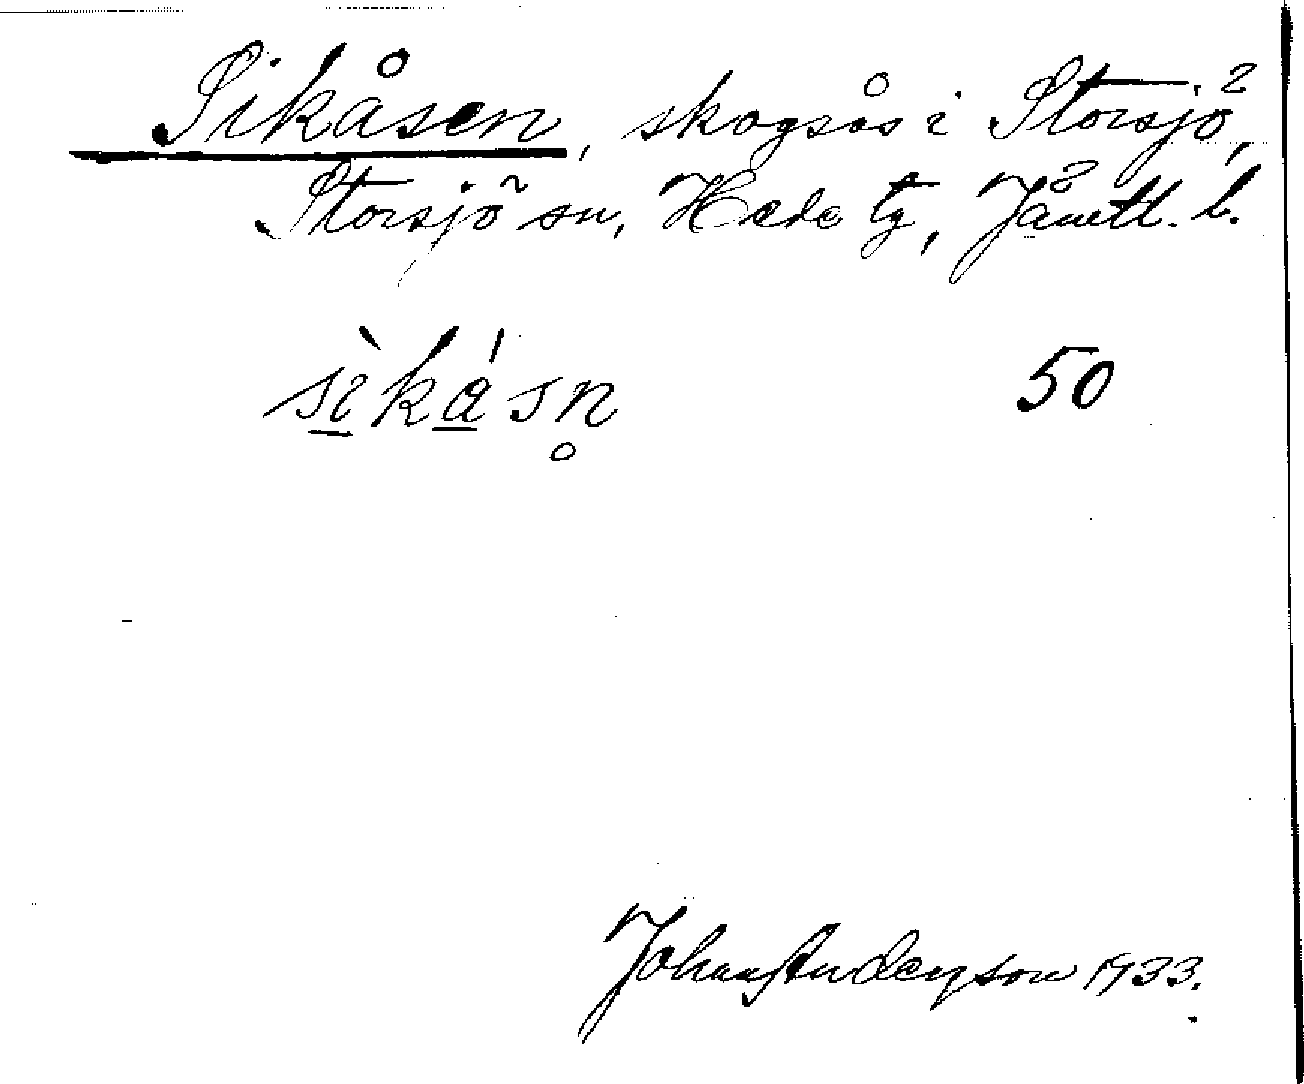 Sikåsen, skogsås i Storsjö,
Storsjö sn, Hede tg, Jämtl. l.
sı̲̀ká̲sn̥ 50
Johan Anderson 1933.